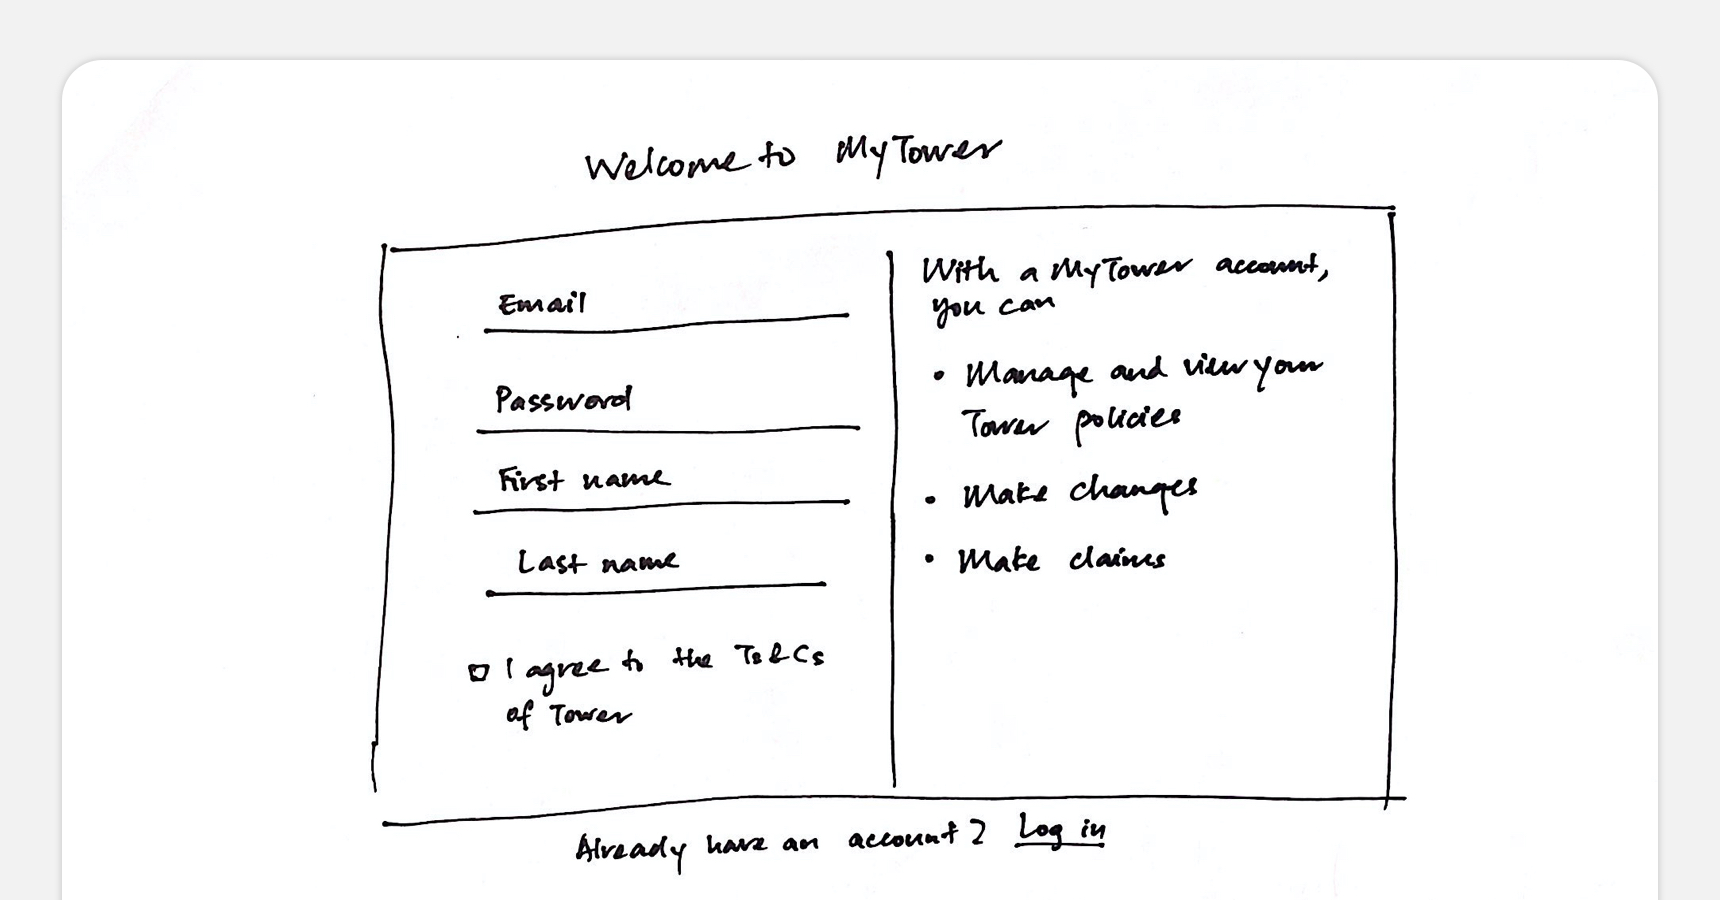 Welcome to MyTower
Email
Password
First name
Last name
I agree to the Ts & Cs
of Tower
With a MyTower account,
you can
• Manage and view your
Tower policies
• Make changes
• Make claims
Already have an account? Log in